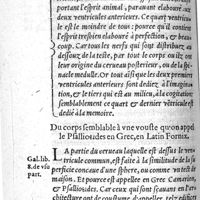 portant l'esprit animal, parauant elabouré aux
deux ventricules anterieurs. Ce quart ventricule
est le moindre de tous: pource qu'il contient
l'esprit tresbien elabouré à perfection, & beau-
coup. Car tous les nerfs qui sont distribuez, au
dessouz de la teste, par tout le corps ont origine
de la partie du cerueau posterieur, ou de la spi-
nacle medulle. Or tout ainsi que les deux premiers
ventricules anterieurs sont dediez à l'imagina-
tion, & cestuy qui est au milieu, à la cogitation:
semblablement ce quart & dernier vẽtricule est
dedié à la memoire.
Du corps semblable à vne voulte qu'on appelle
le Psallioides en Grec, en Latin Fornix.
Gal. lib.
8. de vsu
part.
LA partie du cerueau laquelle est dessus le ven-
tricule commun, est faite à la similitude de la su-
perficie concaue d'une sphere, ou comme vn toict de
maison. Et pource est appellee en Grec Camarion,
& Psallioides. Car ceux qui sont sçauans en l'ar-
chitecture ont de coustume d'appeller, telz edifices